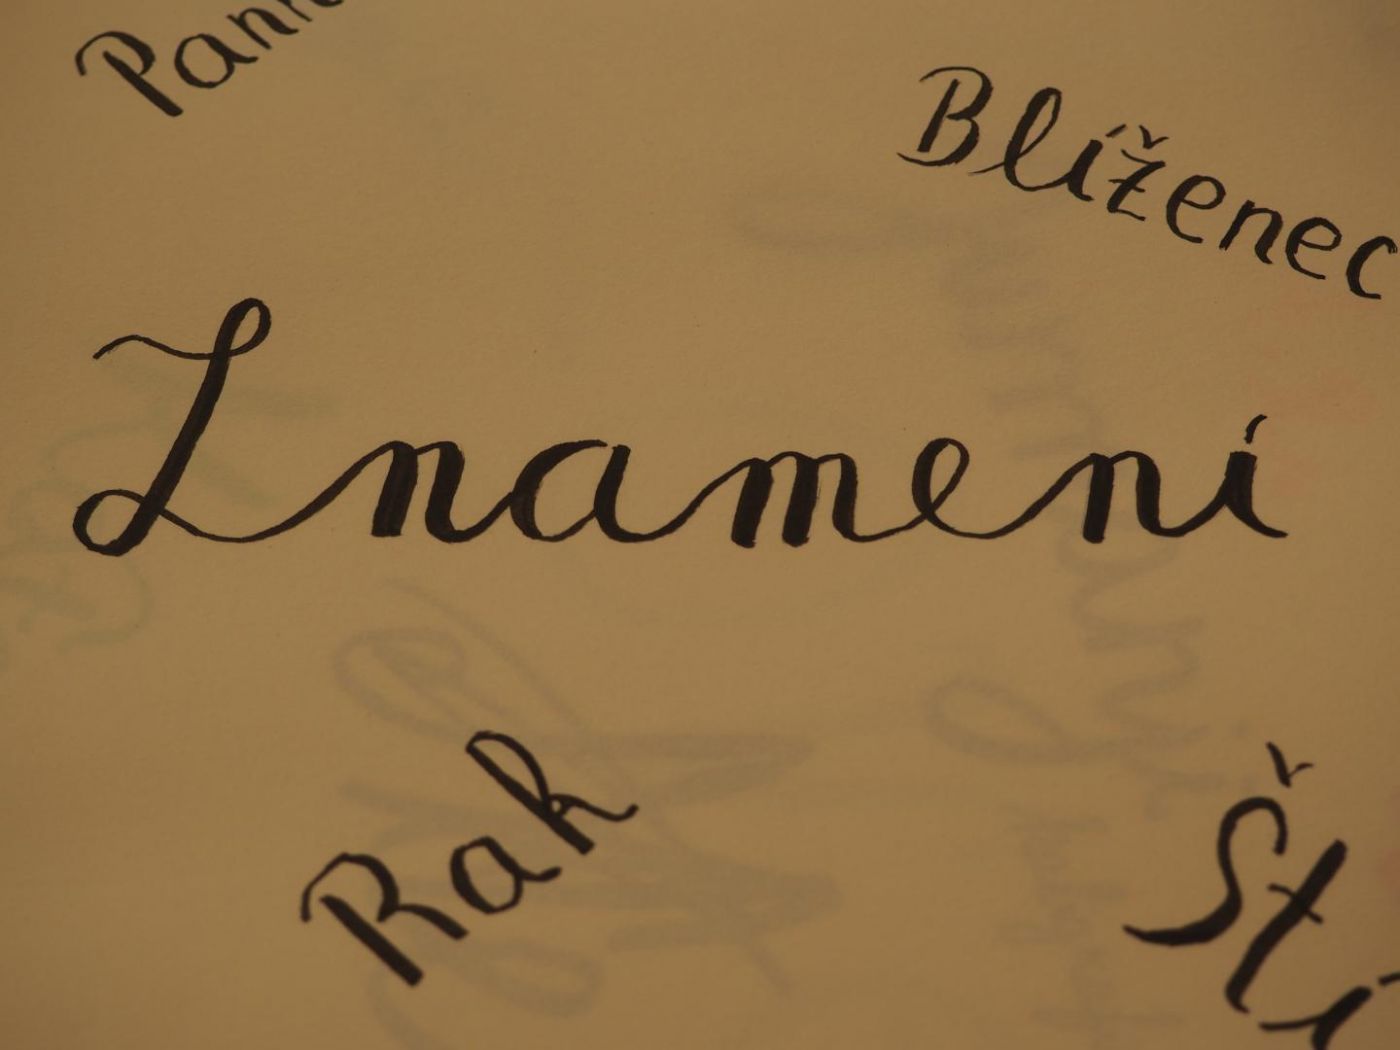 Pann
Blíženec
Znamení
Rak
Ští